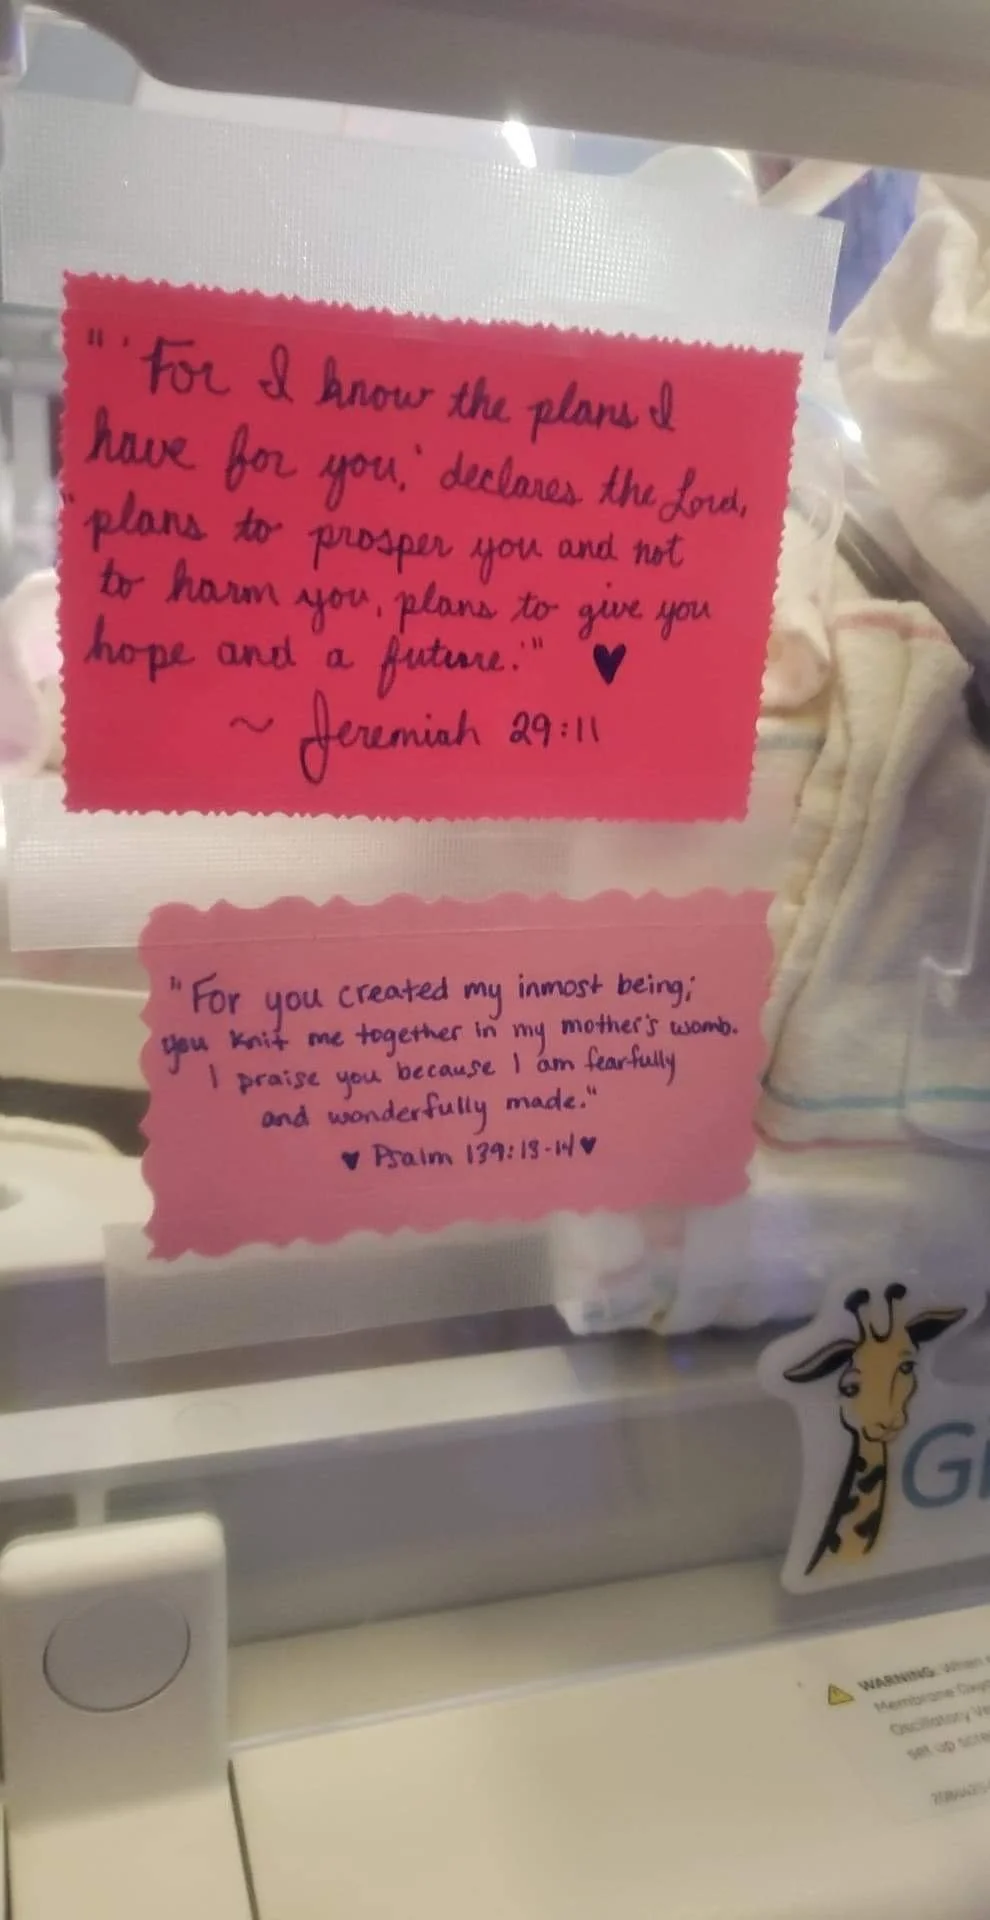 "'For I know the plans I
have for you,' declares the Lord,
"plans to prosper you and not
to harm you, plans to give you
hope and a future.'" ♥
~ Jeremiah 29:11
"For you created my inmost being;
you knit me together in my mother's womb.
I praise you because I am fearfully
and wonderfully made."
♥ Psalm 139:13-14 ♥
Gi
WARNING: When
Membrane Oxy
Oscillatory Ve
set up scre